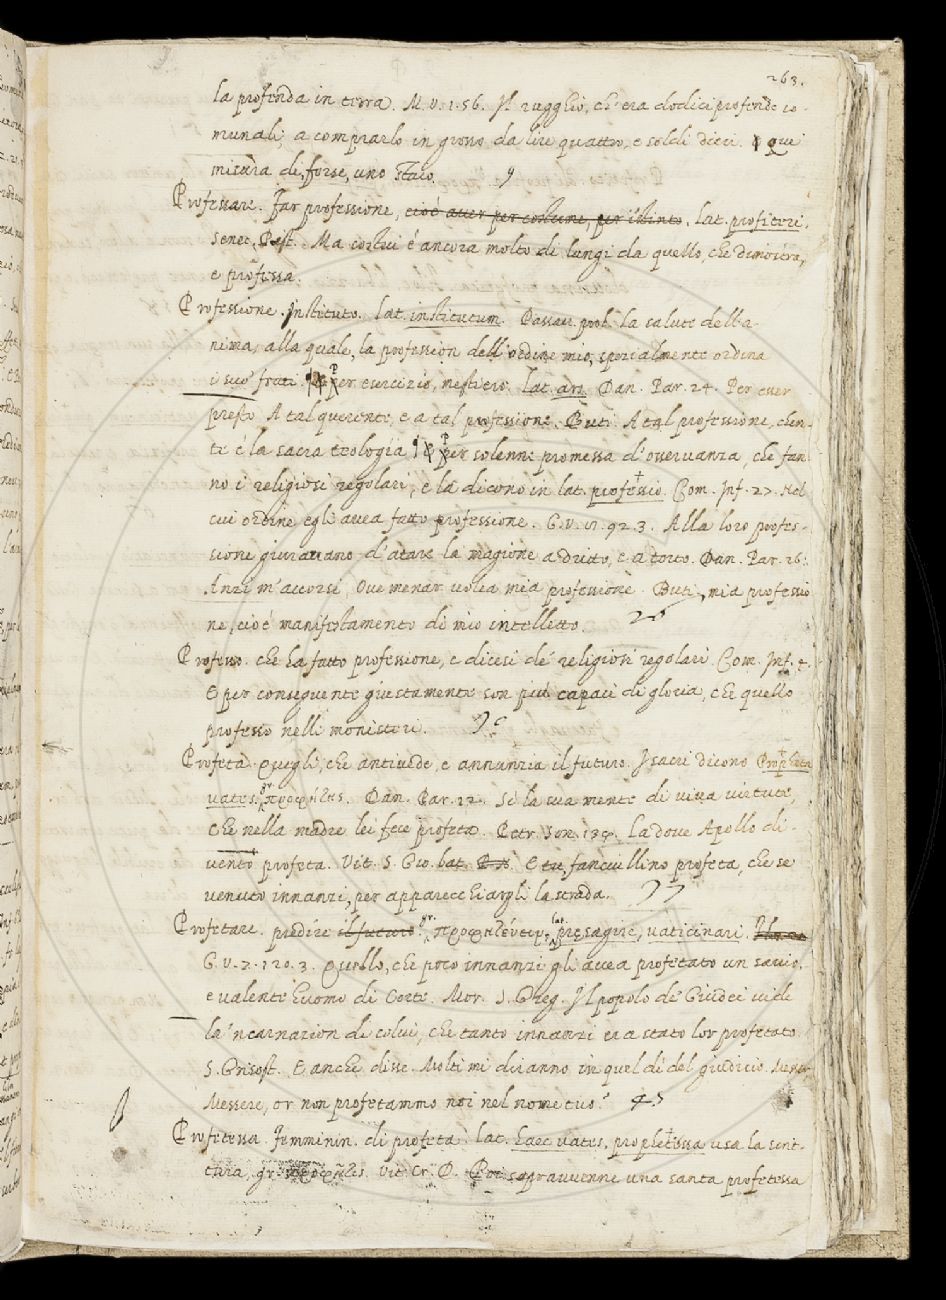 263.
la profenda in terra. M. V. 1. 56. Il rugghio, ch' era dodici profende co-
munali, a comprarlo in grosso da lire quattro, e soldi dieci. qui
misura di, forse, uno staio. 9
Professare. Far professione, cioè auer per costume, per istinto. lat. profiteri.
Senec. Pist. Ma costui è ancora molto di lungi da quello, che dimostra,
e professa.
Professione. Instituto. lat. institutum. Passau. prol. La salute dell' a-
nima, alla quale, la profession dell' ordine mio, spezialmente ordina
i suo' frati. Per esercizio, mestiero. lat. ars. Dan. Par. 24. Per esser
presto A tal querente, e a tal professione. Buti. A tal professione, chen-
te è la sacra teologia. Per solenne promessa d' osseruanza, che fan-
no i religiosi regolari, e la dicono in lat. professio. Com. Inf. 27. Nel
cui ordine egli auea fatto professione. G. V. 92. 3. Alla loro profes-
sione giurauano d' atare la magione a dritto, e a torto. Dan. Par. 26.
Anzi m' accorsi, Oue menar volea mia professione. Buti, mia professio
ne, cioè manifestamento di mio intelletto. 26
Professo. che ha fatto professione, e dicesi de' religiosi regolari. Com. Inf. 7.
E per conseguente giustamente son più capaci di gloria, che quello
professo nelli monisteri.
Profeta. Quegli, che antiuede, e annunzia il futuro. I sacri dicono Propheta
vates: gr. προφήτης. Dan. Par. 12. Sì la sua mente di viua virtute,
Che nella madre lei fece profeta. Petr. Son. La doue Apollo di-
uentò profeta. Vit. S. Gio. bat. E tu fanciullino profeta, che se'
venuto innanzi, per apparecchiargli la strada. 33
Profetare. predire il futuro. gr. προφητεύειν. lat. presagire, vaticinari.
G. V. 7. 120. 3. Quello, che poco innanzi gli auea profetato un sauio,
e valente huomo di Corte. Mor. S. Greg. Il popolo de' Giudei vide
la 'ncarnazion di colui, che tanto innanzi era stato lor profetato
S. Grisost. E anche disse. Molti mi diranno in quel dì del giudicio. Messer,
Messere, or non profetammo noi nel nome tuo? 43
Profetessa. Femminin. di profeta. lat. haec vates, prophetissa usa la scrit-
tura, gr. προφῆτις. Vit. Cr. D. Poi soprauuenne una santa profetessa